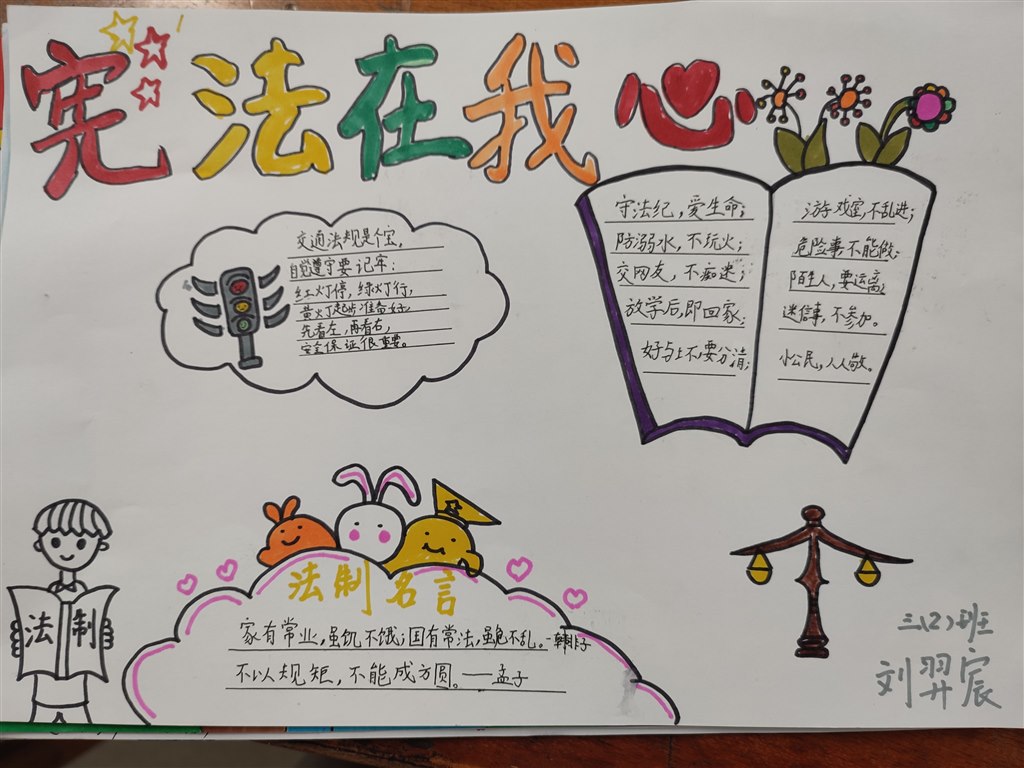 宪法在我心
交通法规是个宝,
自觉遵守要记牢:
红灯停,绿灯行,
黄灯起步准备好,
先看左,再看右,
安全保证很重要。
守法纪,爱生命;
防溺水,不玩火;
交网友,不痴迷;
放学后,即回家;
好与上不要分清;
游戏室,不乱进;
危险事不能做;
陌生人,要远离;
迷信事,不参加。
小公民,人人敬。
法制
法制名言
家有常业,虽饥不饿;国有常法,虽危不乱。-韩非子
不以规矩,不能成方圆。——孟子
三(2)班
刘羿宸